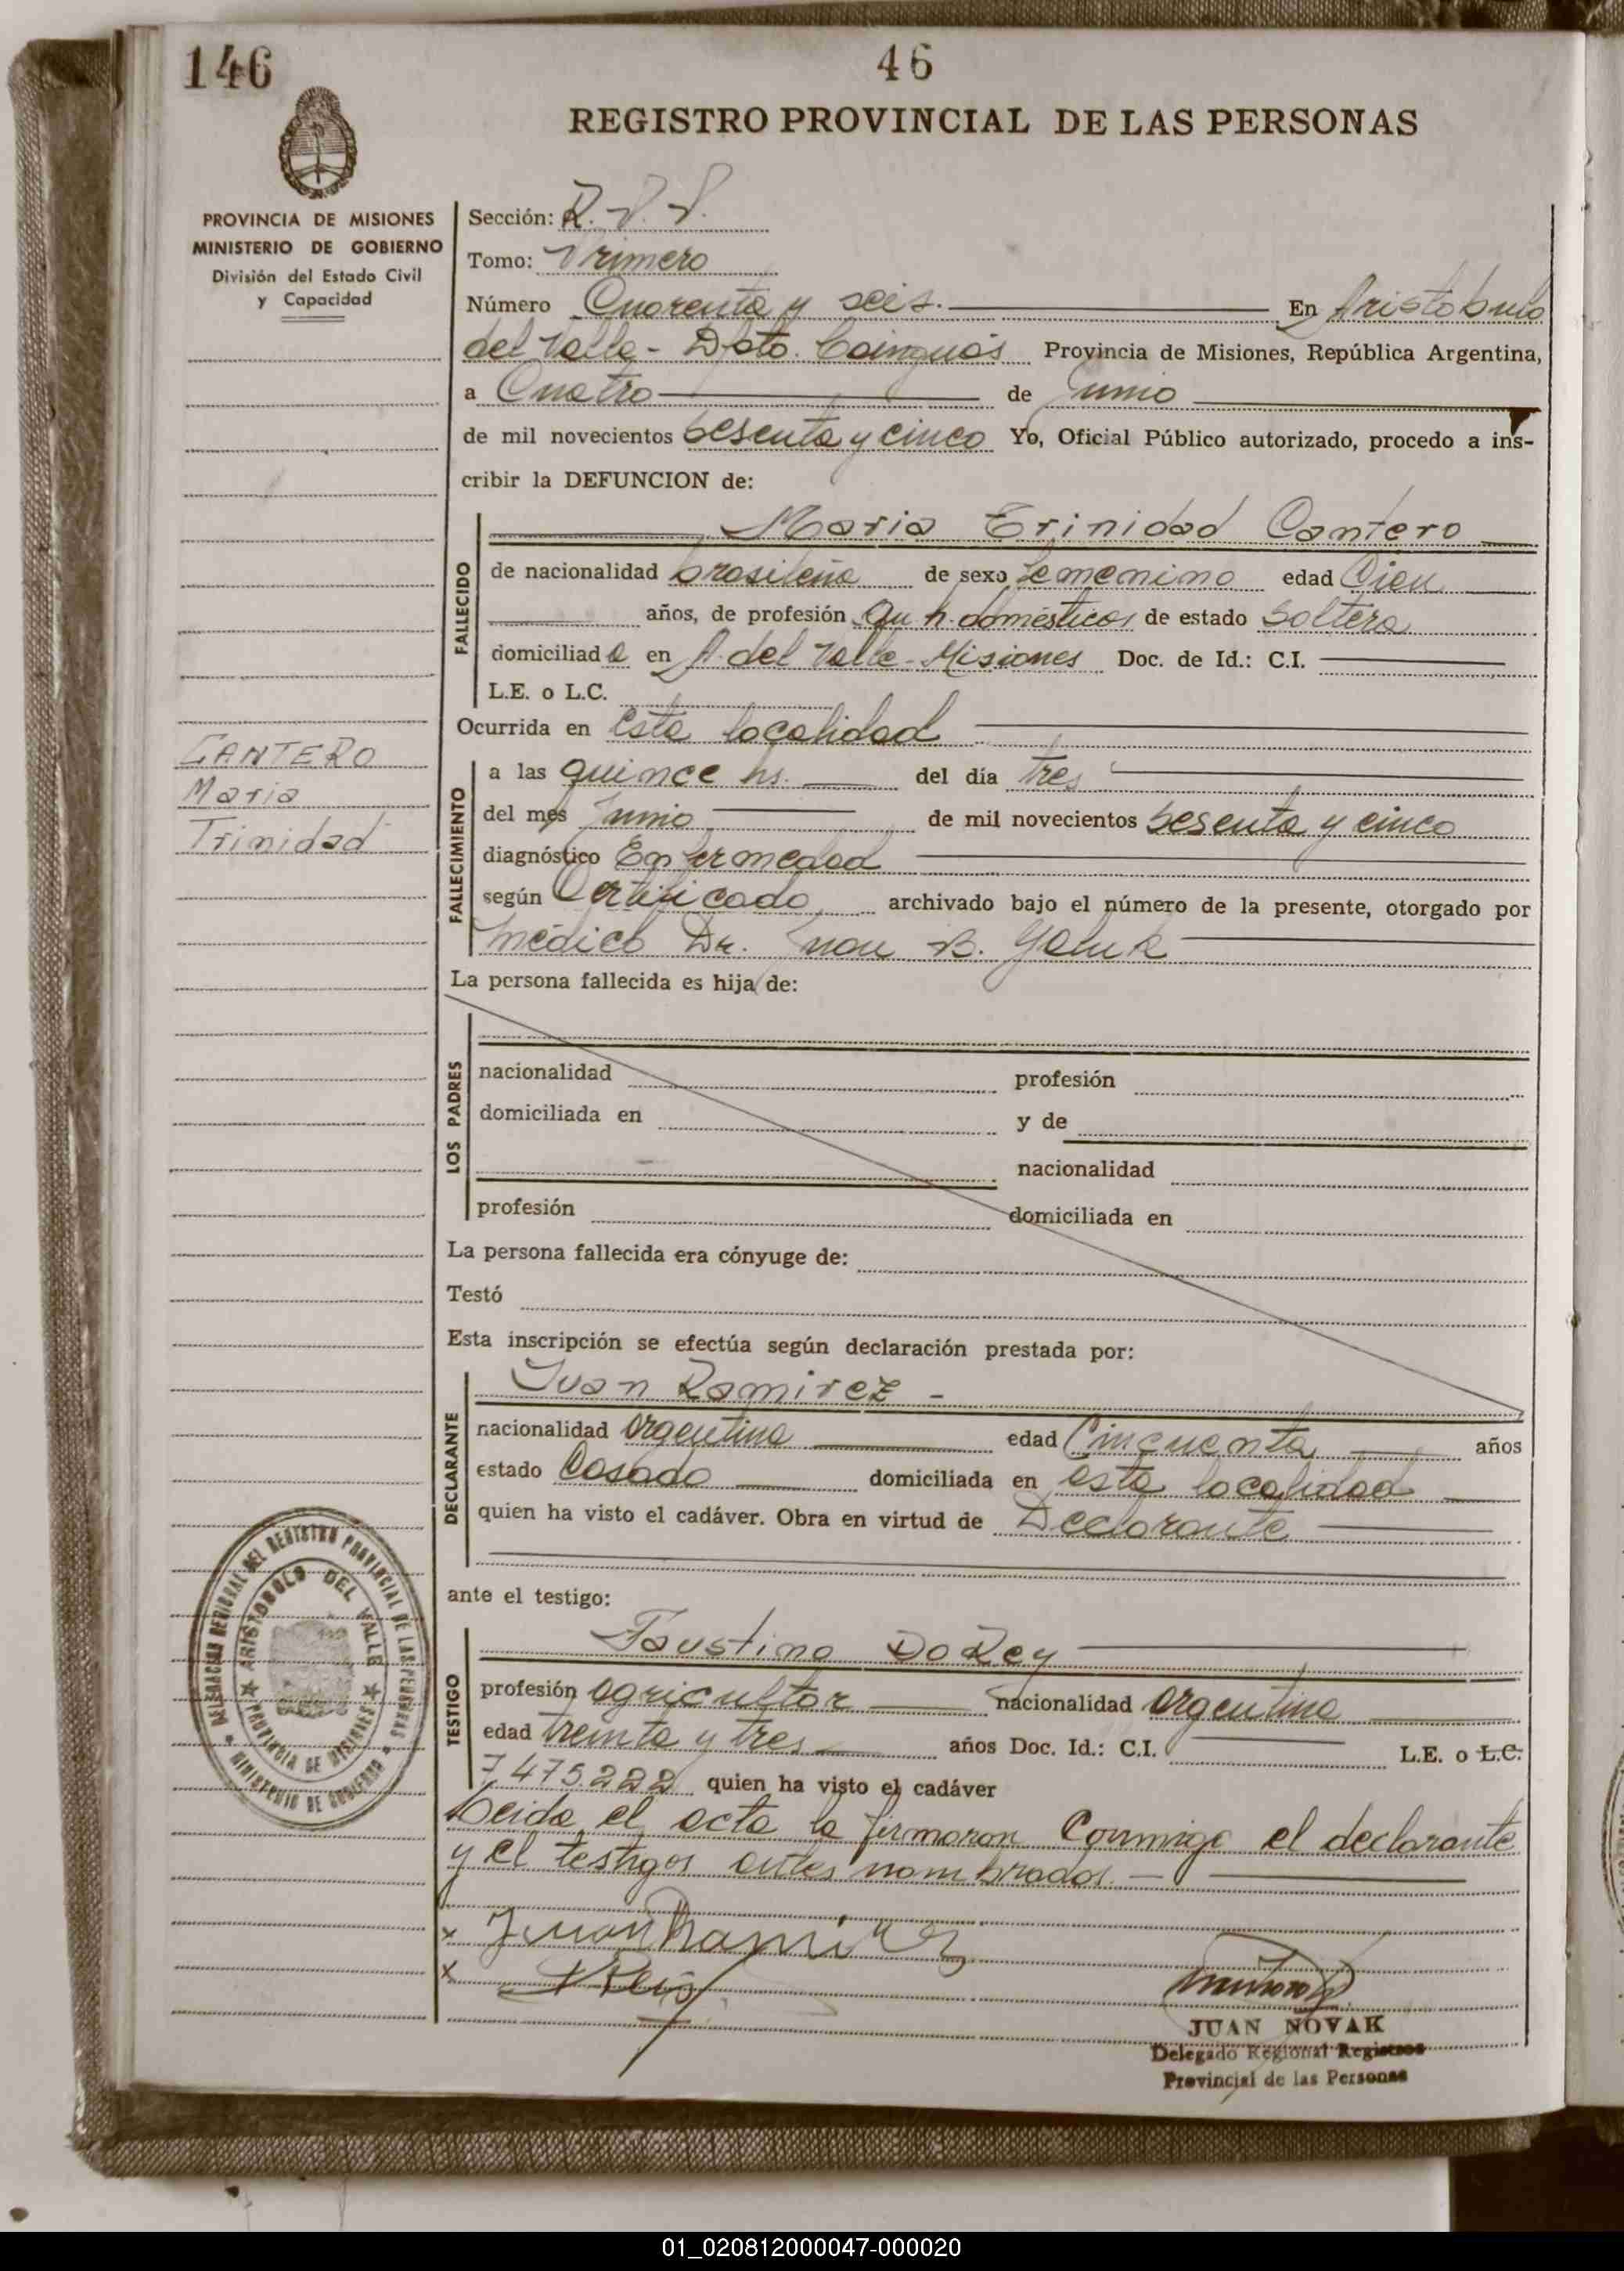 146
46
REGISTRO PROVINCIAL DE LAS PERSONAS
PROVINCIA DE MISIONES
MINISTERIO DE GOBIERNO
División del Estado Civil
y Capacidad
Sección: R.
Tomo: Primero
Número Cuarenta y seis. En Aristobulo
del Valle - Dpto. Cainguás Provincia de Misiones, República Argentina,
a Cuatro de Junio
de mil novecientos Sesenta y cinco Yo, Oficial Público autorizado, procedo a ins-
cribir la DEFUNCION de:
Maria Trinidad Cantero
FALLECIDO
de nacionalidad brasileña de sexo femenino edad Cien
años, de profesión domésticos de estado Soltera
domiciliada en A. del Valle - Misiones Doc. de Id.: C.I.
L.E. o L.C.
Ocurrida en esta localidad
CANTERO
Maria
Trinidad
FALLECIMIENTO
a las quince hs. del día tres
del mes Junio de mil novecientos Sesenta y cinco
diagnóstico Enfermedad
según Certificado archivado bajo el número de la presente, otorgado por
médico Dr. Juan B. Goluk
La persona fallecida es hija de:
LOS PADRES
nacionalidad profesión
domiciliada en y de
nacionalidad
profesión domiciliada en
La persona fallecida era cónyuge de:
Testó
Esta inscripción se efectúa según declaración prestada por:
DECLARANTE
Juan Ramirez -
nacionalidad argentina edad Cincuenta años
estado Casado domiciliada en esta localidad
quien ha visto el cadáver. Obra en virtud de Declarante
ante el testigo:
TESTIGO
Faustino DoRey
profesión agricultor nacionalidad argentina
edad treinta y tres años Doc. Id.: C.I. L.E. o L.C.
7475.222 quien ha visto el cadáver
Leida el acta la firmaron Conmigo el declarante
y el testigos antes nombrados.
DELEGACION REGIONAL DEL REGISTRO PROVINCIAL DE LAS PERSONAS
MINISTERIO DE GOBIERNO
ARISTOBULO DEL VALLE
PROVINCIA DE MISIONES
x Juan Ramirez
x
JUAN NOVAK
Delegado Regional Registros
Provincial de las Personas
01_020812000047-000020